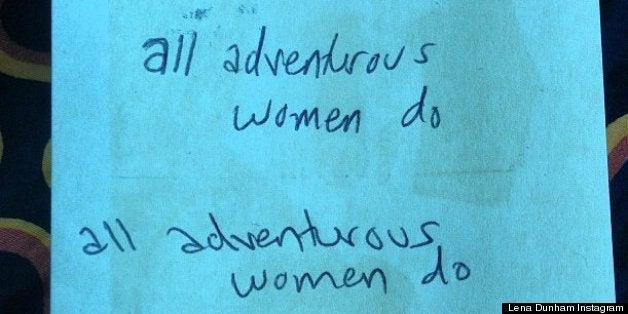 all adventurous
women do
all adventurous
women do
Lena Dunham Instagram